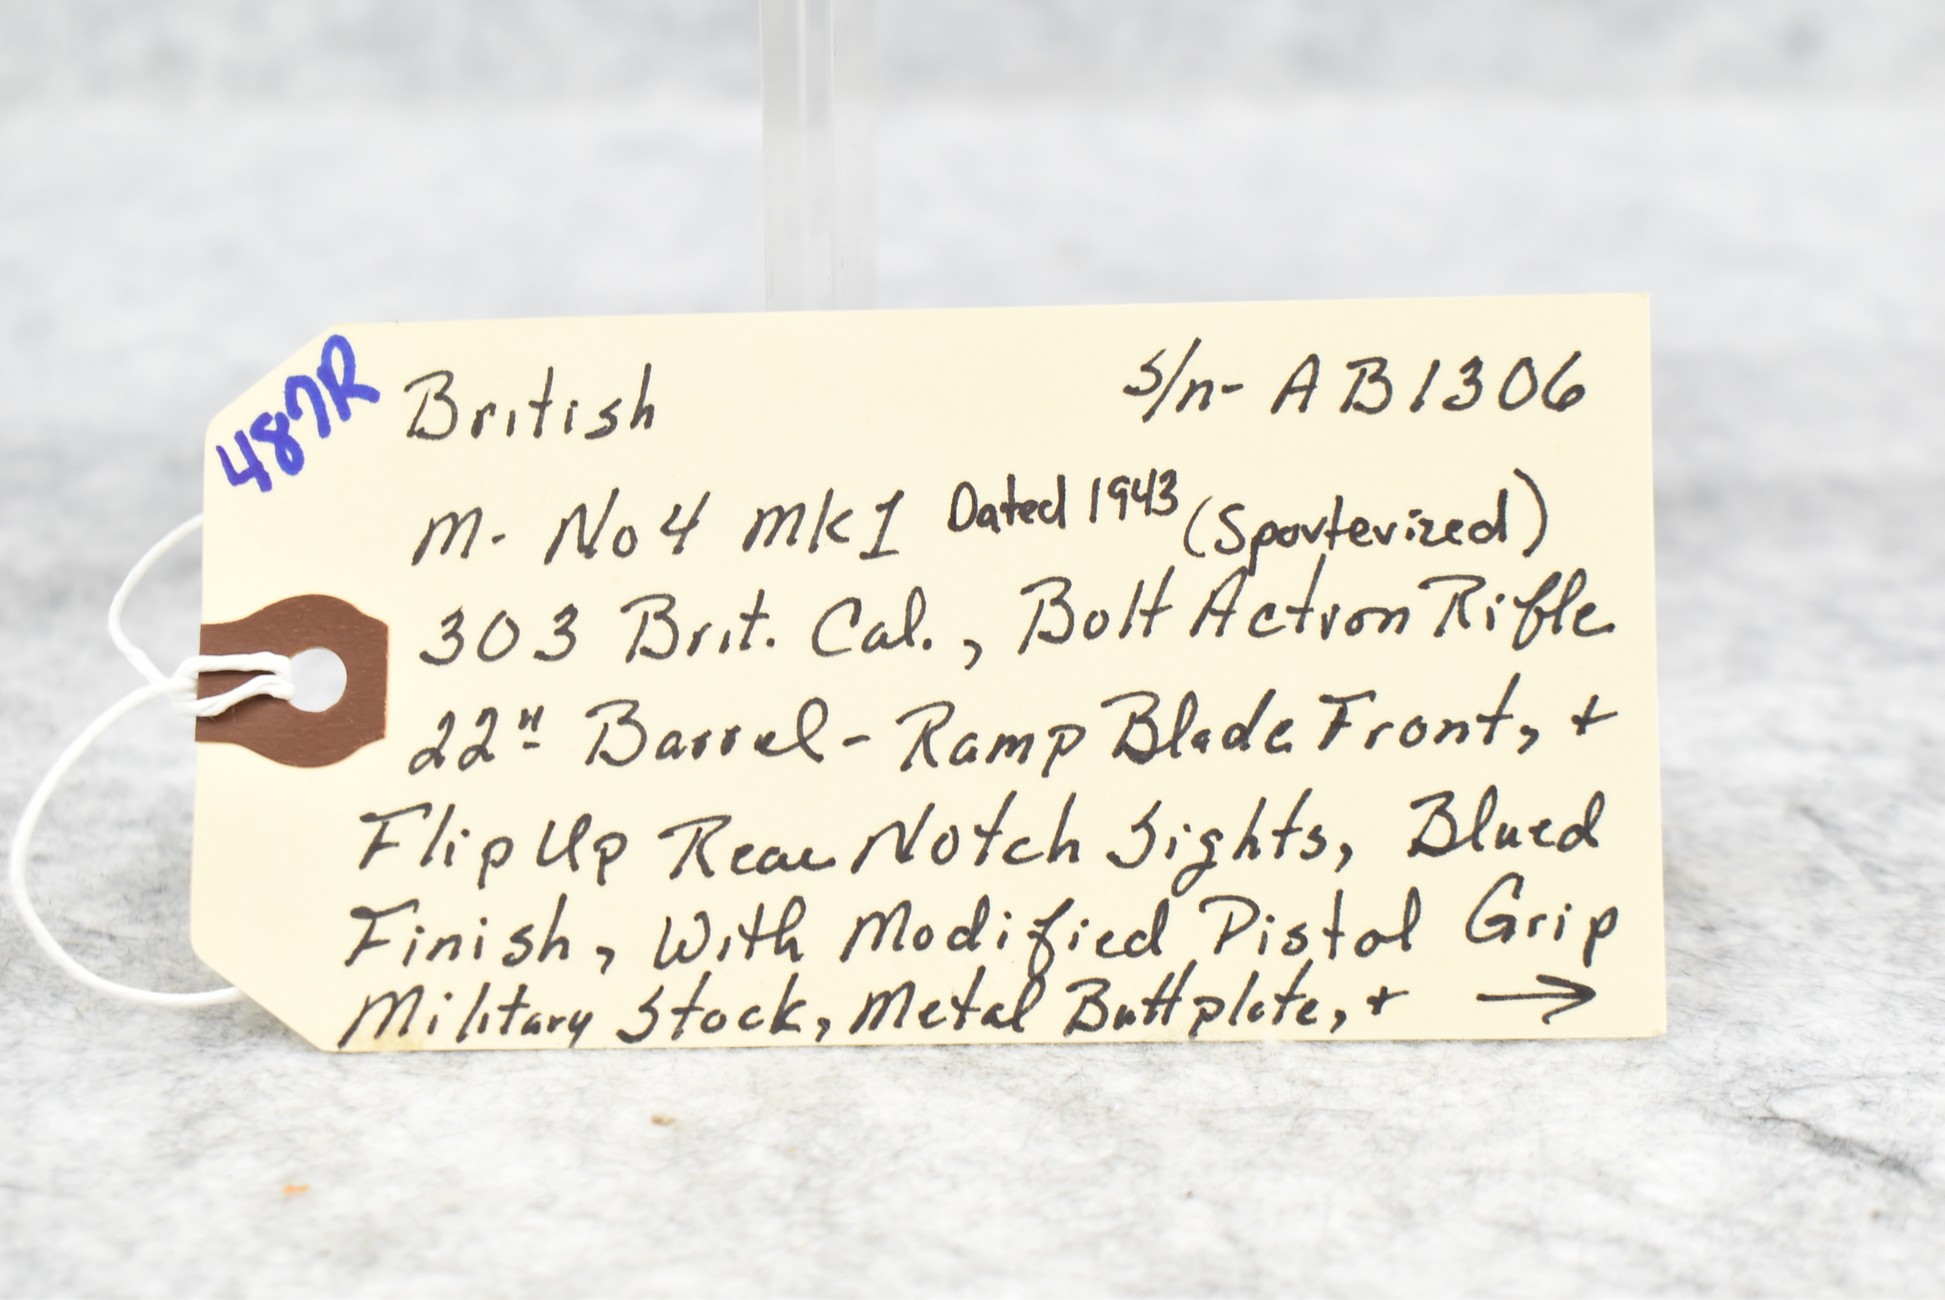 487R
British s/n- AB1306
M- No 4 Mk I Dated 1943 (Sporterized)
303 Brit. Cal., Bolt Action Rifle
22" Barrel - Ramp Blade Front, +
Flip Up Rear Notch Sights, Blued
Finish, With Modified Pistol Grip
Military Stock, Metal Buttplate, + →